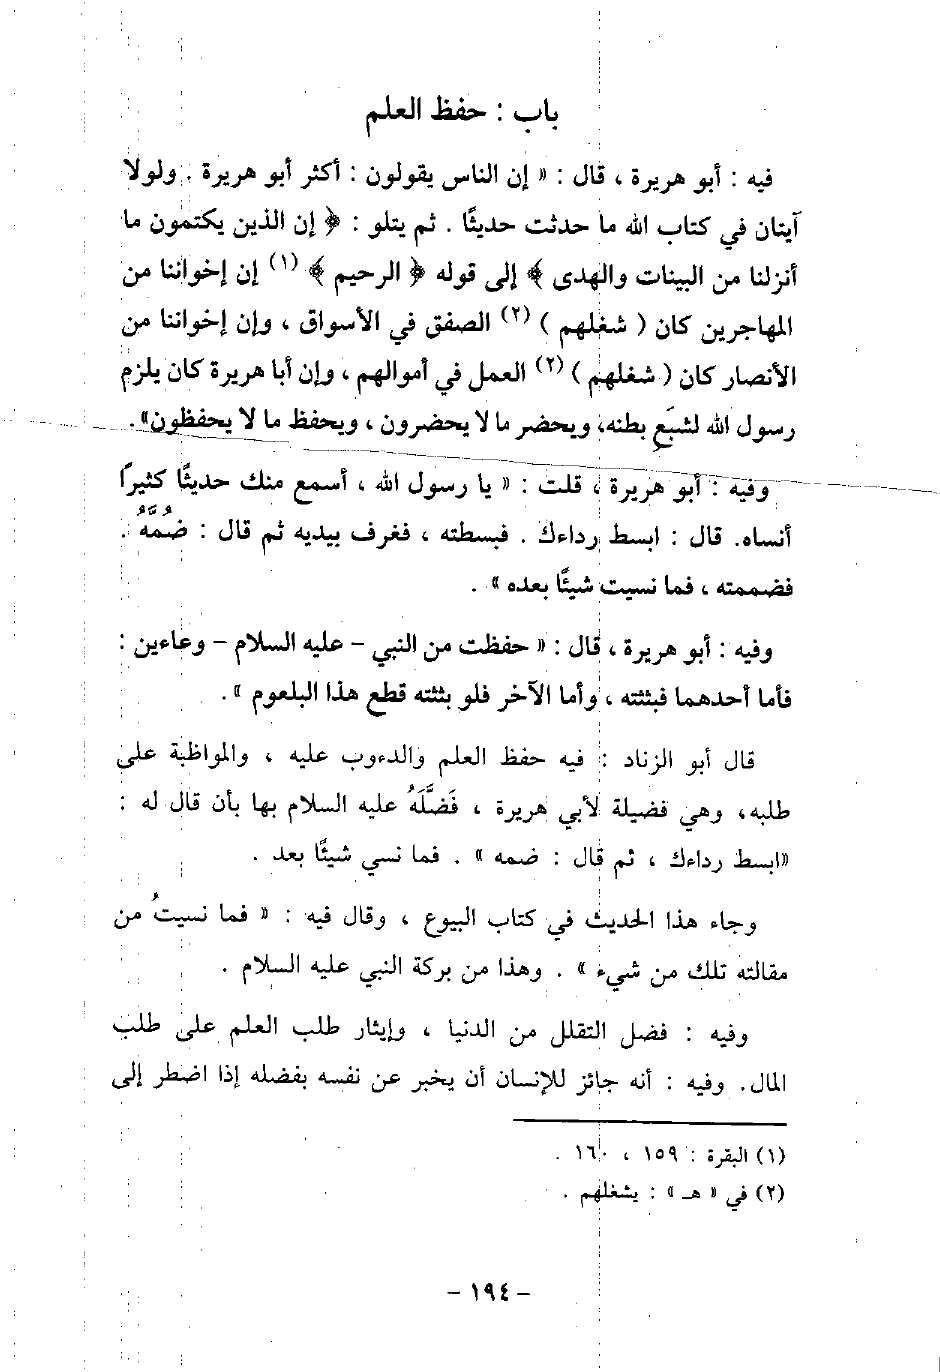 باب : حفظ العلم
فيه : أبو هريرة ، قال : « إن الناس يقولون : أكثر أبو هريرة . ولولا
آيتان في كتاب الله ما حدثت حديثًا . ثم يتلو : ﴿ إن الذين يكتمون ما
أنزلنا من البينات والهدى ﴾ إلى قوله ﴿ الرحيم ﴾ (١) إن إخواننا من
المهاجرين كان ( شغلهم ) (٢) الصفق في الأسواق ، وإن إخواننا من
الأنصار كان ( شغلهم ) (٢) العمل في أموالهم ، وإن أبا هريرة كان يلزم
رسول الله لشبَعِ بطنه، ويحضر ما لا يحضرون ، ويحفظ ما لا يحفظون» .
وفيه : أبو هريرة ، قلت : « يا رسول الله ، أسمع منك حديثًا كثيرًا
أنساه. قال : ابسط رداءك . فبسطته ، فغرف بيديه ثم قال : ضُمَّهُ .
فضممته ، فما نسيت شيئًا بعده » .
وفيه : أبو هريرة ، قال : « حفظت من النبي – عليه السلام – وعاءين :
فأما أحدهما فبثثته ، وأما الآخر فلو بثثته قطع هذا البلعوم » .
قال أبو الزناد : فيه حفظ العلم والدءوب عليه ، والمواظبة على
طلبه، وهي فضيلة لأبي هريرة ، فَضَّلَهُ عليه السلام بها بأن قال له :
«ابسط رداءك ، ثم قال : ضمه » . فما نسي شيئًا بعد .
وجاء هذا الحديث في كتاب البيوع ، وقال فيه : « فما نسيتُ من
مقالته تلك من شيء » . وهذا من بركة النبي عليه السلام .
وفيه : فضل التقلل من الدنيا ، وإيثار طلب العلم على طلب
المال. وفيه : أنه جائز للإنسان أن يخبر عن نفسه بفضله إذا اضطر إلى
(١) البقرة : ١٥٩ ، ١٦٠ .
(٢) في « هـ » : يشغلهم .
– ١٩٤ –